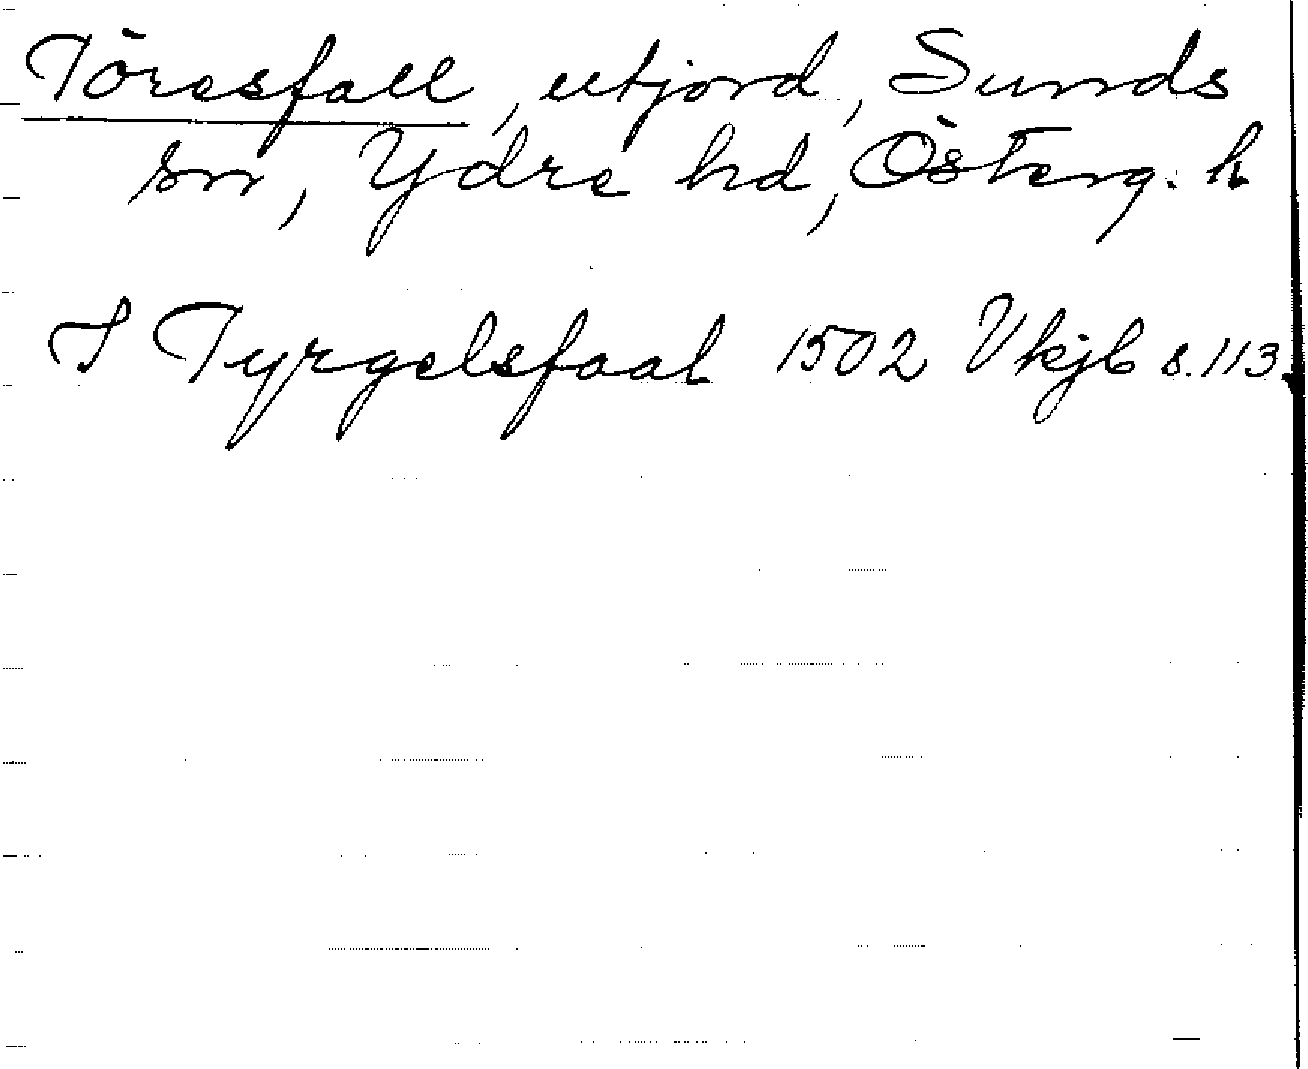 Töresfall, utjord, Sunds
sn, Ydre hd, Österg. l.
I Tyrgelsfaal 1502 Vkjb s. 113